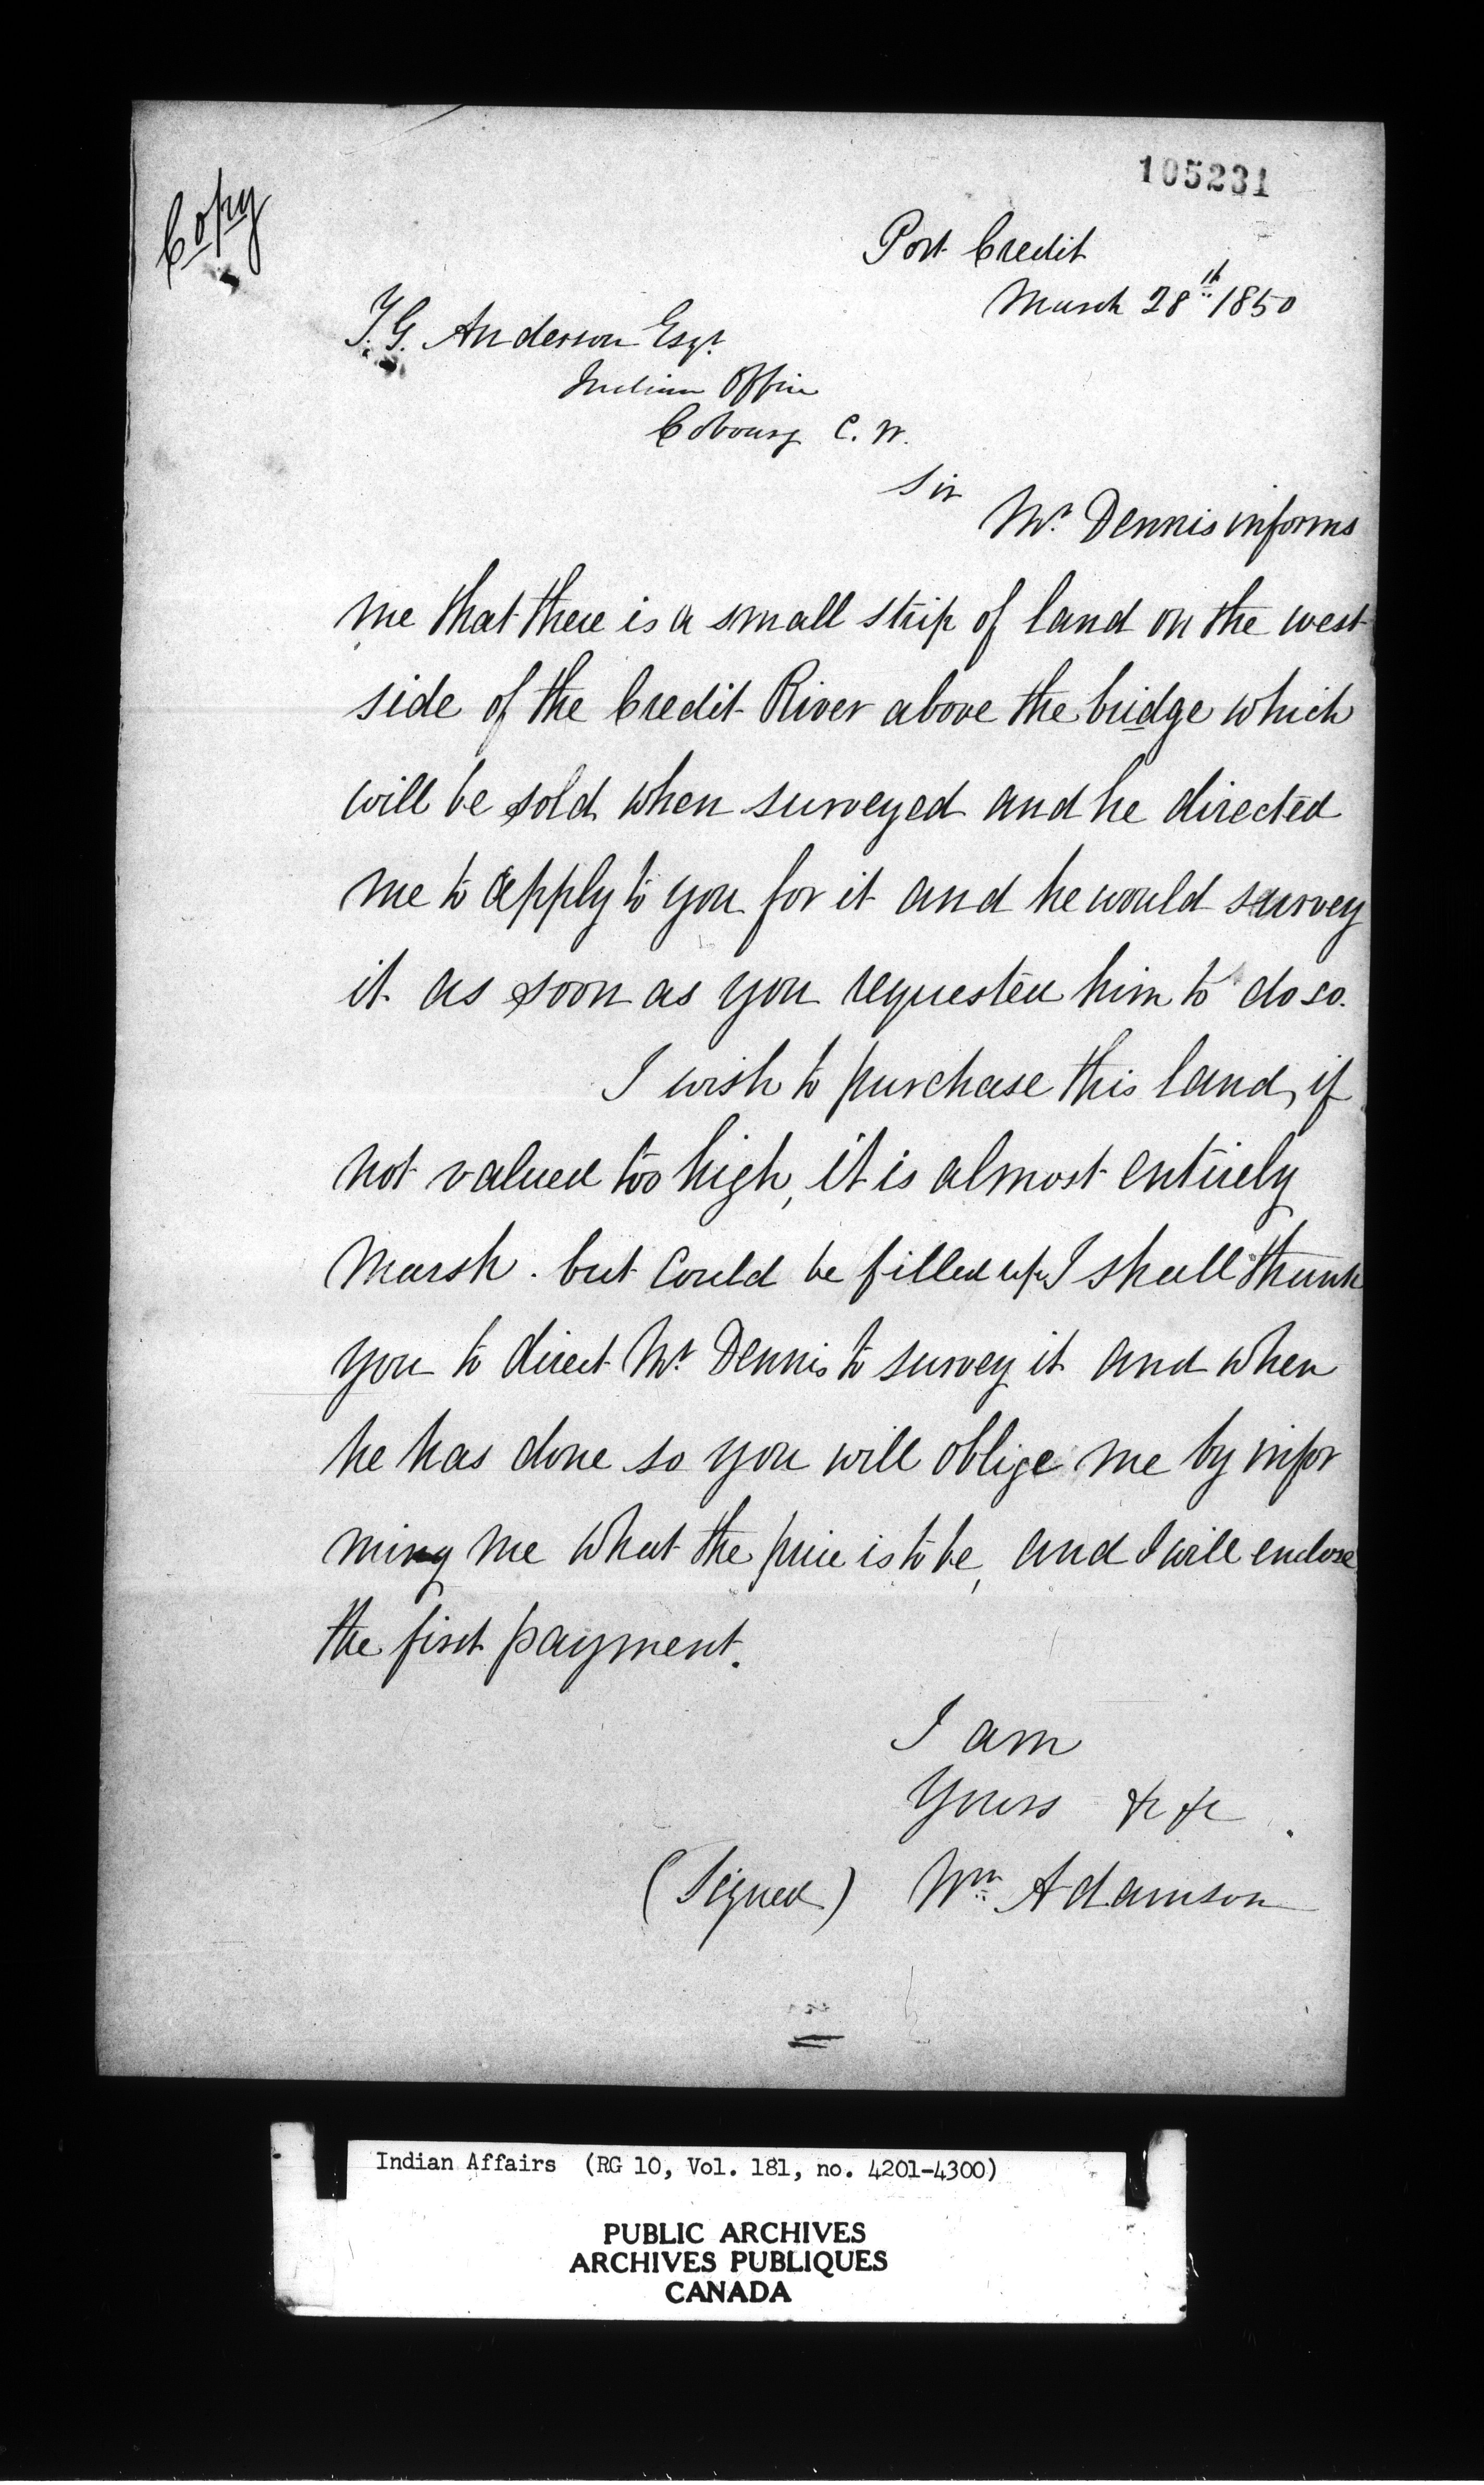 105231
Copy
Port Credit
March 28th 1850
T. G. Anderson Esqr.
Indian Office
Cobourg C. W.
Sir
Mr. Dennis informs
me that there is a small strip of land on the west
side of the Credit River above the bridge which
will be sold when surveyed and he directed
me to apply to you for it and he would survey
it as soon as you requested him to do so.
I wish to purchase this land, if
not valued too high, it is almost entirely
Marsh. but could be filled up I shall thank
you to direct Mr. Dennis to survey it and when
he has done so you will oblige me by infor
ming me what the price is to be, and I will enclose
the first payment.
I am
Yours &c &c
(Signed) Wm. Adamson
Indian Affairs (RG 10, Vol. 181, no. 4201-4300)
PUBLIC ARCHIVES
ARCHIVES PUBLIQUES
CANADA